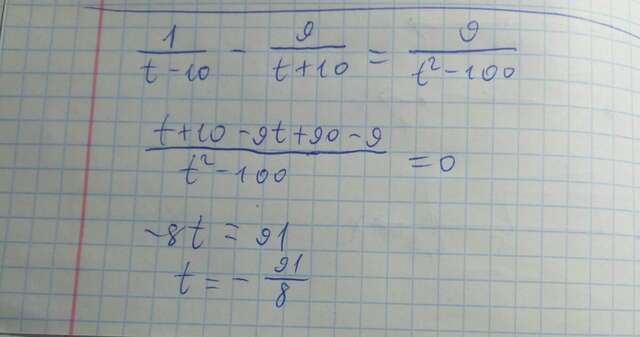 1/(t-10) - 9/(t+10) = 9/(t²-100)
(t+10-9t+90-9)/(t²-100) = 0
-8t = 91
t = -91/8